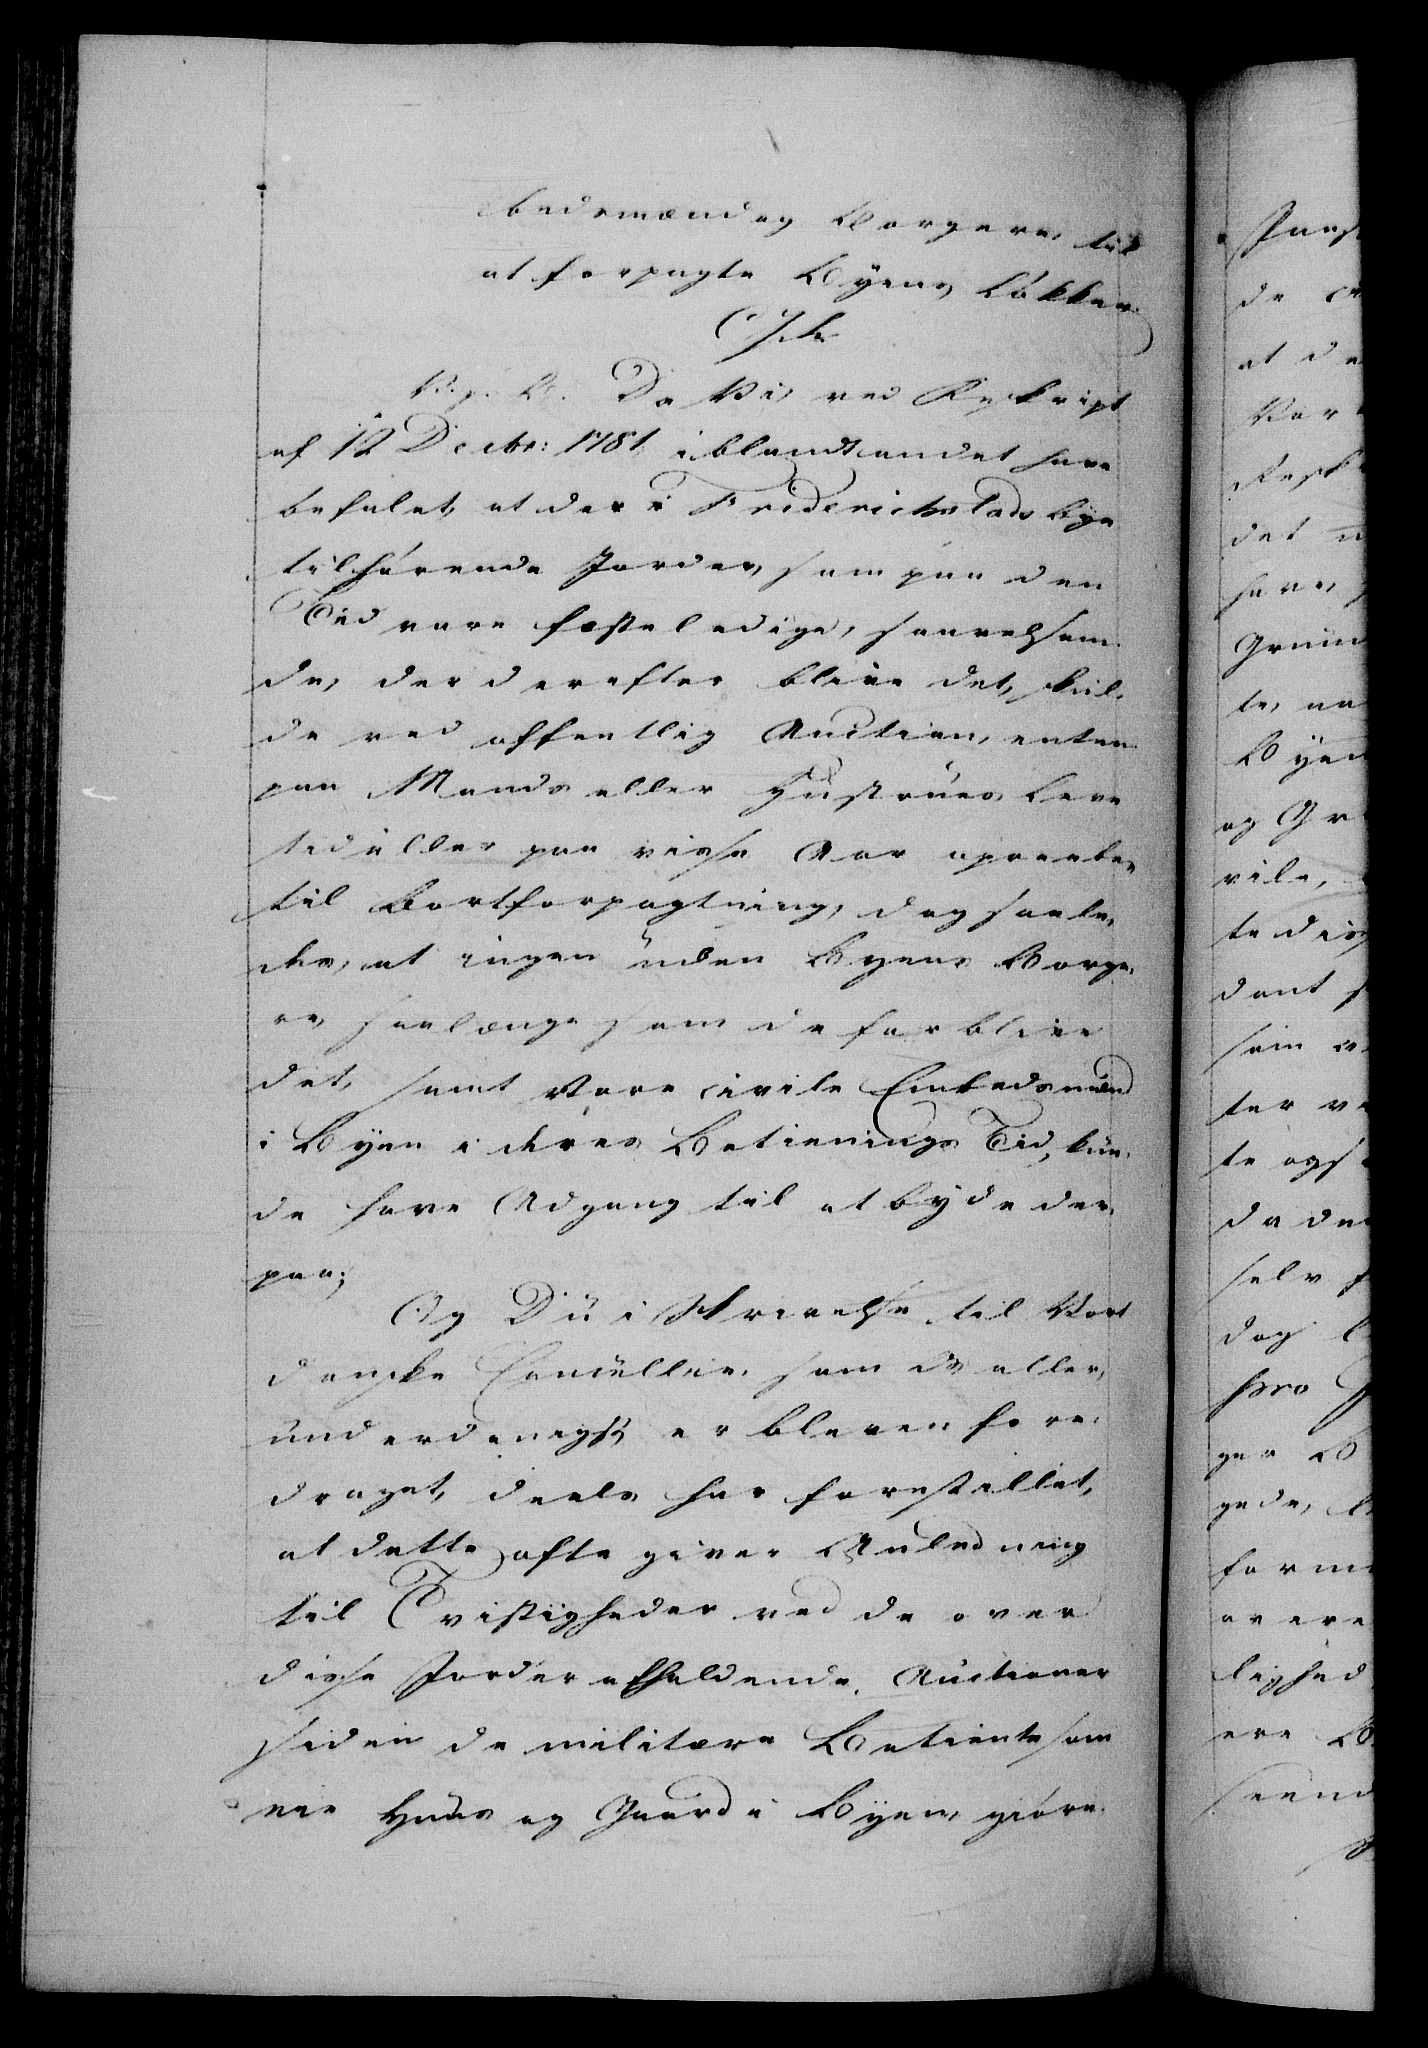 bedsmænd og Borgere, til
at forpagte Byens Løkker.
V. g. T. Da Vi ved Reskript
af 12 Decbr: 1781 iblandt andet have
befalet, at de i Friderichstads Bye
tilhørende Jorder, som paa den
Tid vare fæsteledige, saavelsom
de, der derefter blive det, skul-
de ved offentlig Auction, enten
paa Mands eller Hustrues Leve
tid eller paa visse Aar opraabes
til Bortforpagtning, dog saale-
des, at ingen uden Byens Borge-
re, saalænge som de forblive
det, samt Vore civile Embedsmænd
i Byen i deres Betienings Tid, kun-
de have Adgang til at byde der-
paa;
Og Du i Skrivelse til Vort
danske Cancellie, som Os aller-
underdanigst er bleven fore-
draget, deels har forestillet,
at dette ofte giver Anledning
til Tvistigheder ved de over
disse Jorder afholdende Auctioner
siden de militære Betiente som
eie Huus og Gaard i Byen, giøre
Paast
de
at de
Vor
Resk
det
have
Grund
te, 
Byen
og Gr
vile,
te dis
dant
som
ter
te ogs
da de
selv
dog
hvo
ger B
gede,
form
overe
lighed
ere B
seend